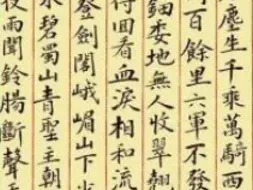 塵生千乘萬騎西
百餘里六軍不發
鈿委地無人收翠翹
得回看血淚相和流
登劍閣峨嵋山下少
水碧蜀山青聖主朝
夜雨聞鈴腸斷聲